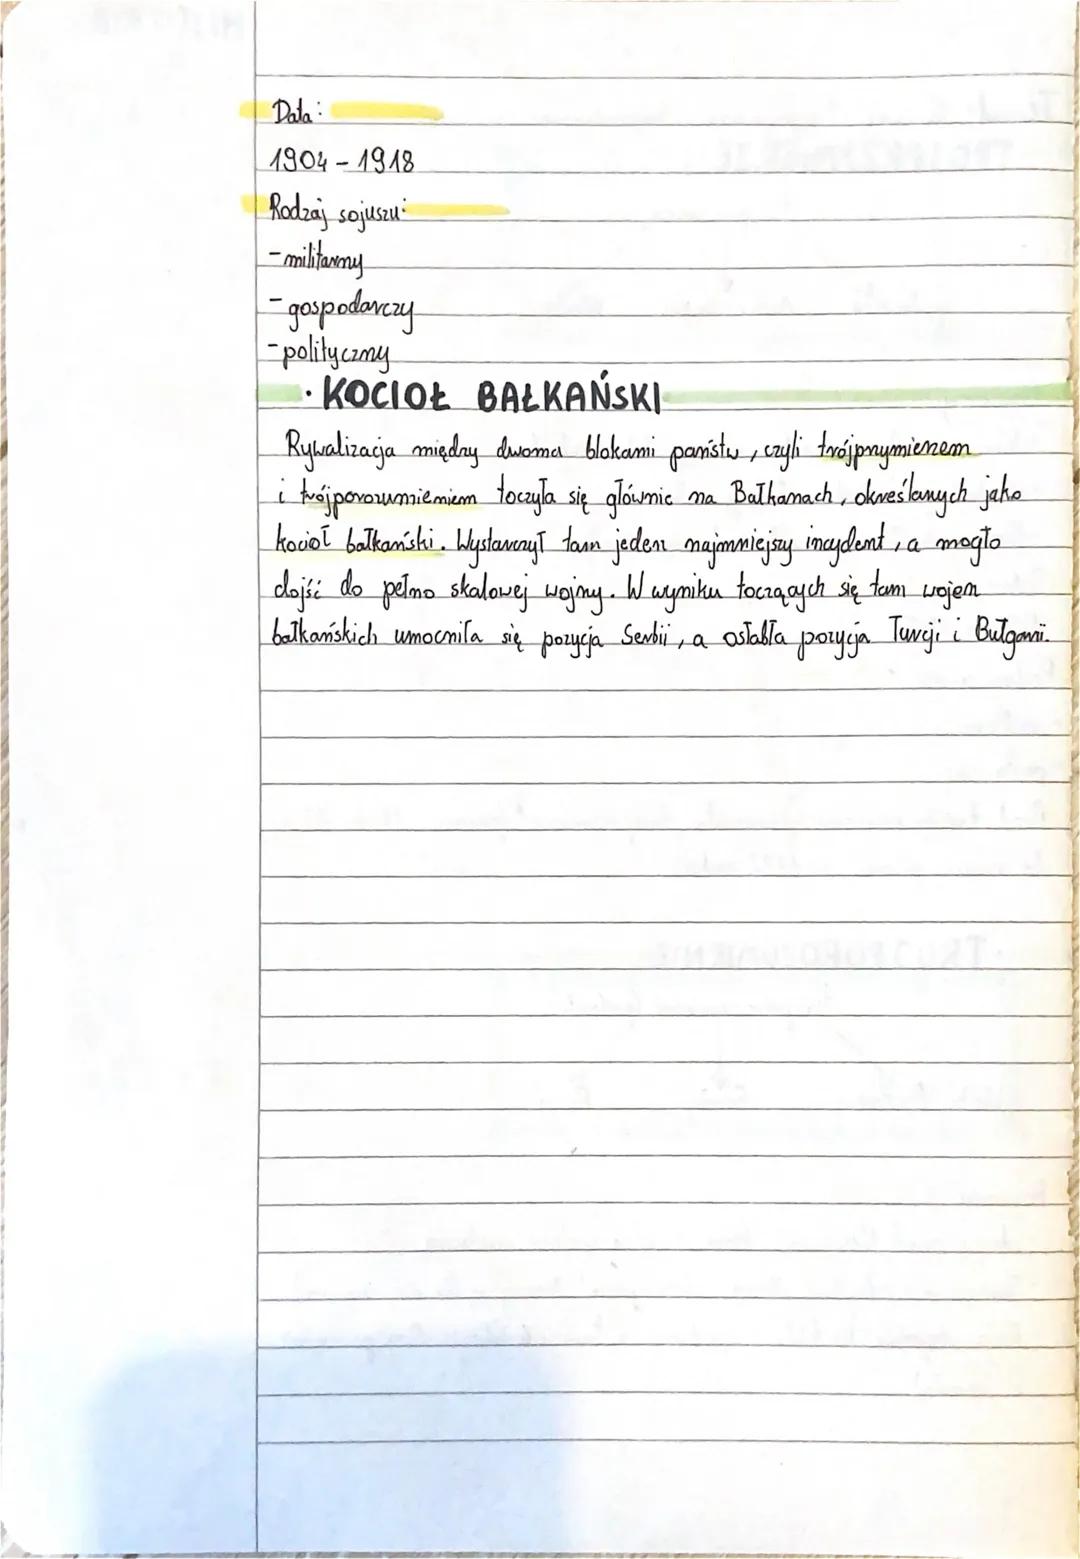 Data:
1904 - 1918
Rodzaj sojuszu:
- militarny
- gospodarczy
- polityczny
· KOCIOŁ BAŁKAŃSKI
Rywalizacja między dwoma blokami państw, czyli trójprzymierzem
i trójporozumieniem toczyła się głównie na Bałkanach, określanych jako
kocioł bałkański. Wystarczył tam jeden najmniejszy incydent, a mogło
dojść do pełno skalowej wojny. W wyniku toczących się tam wojen
bałkańskich umocniła się pozycja Serbii, a osłabła pozycja Turcji i Bułgarii.